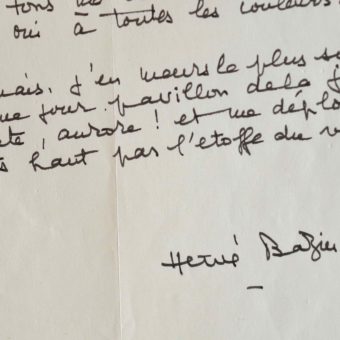 tons
oui à toutes les couleurs
mais, j'en meurs le plus so
que jour pavillon de la j
té, aurore ! et me déplo
s haut pas l'étoffe du v
Hervé Bazin